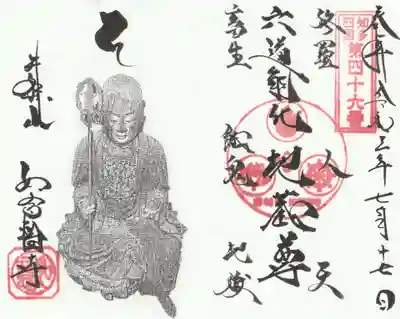 奉拝 令和三年七月十七日
知多
四国
第四十六番
修羅 人 天
六道能化地蔵尊
畜生 餓鬼 地獄
井際山
如意輪寺